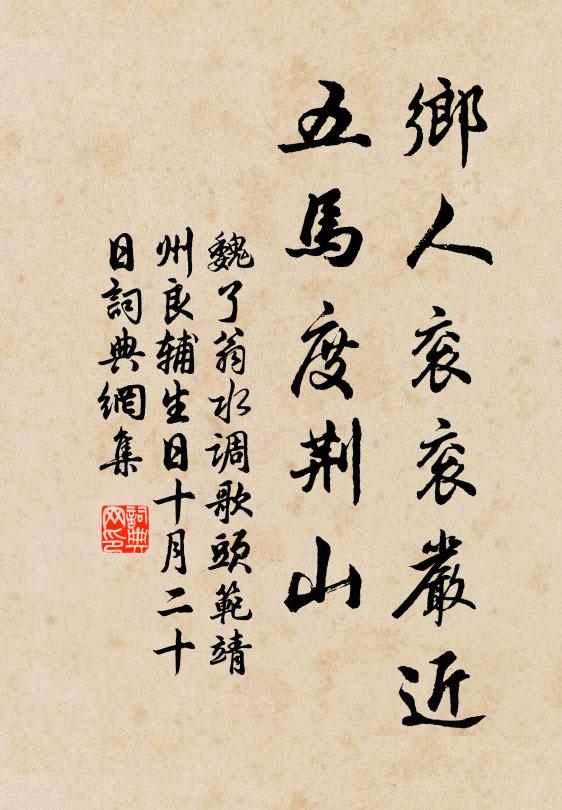 鄉人衮衮嚴近
五馬度荆山
魏了翁水调歌頭範靖
州良辅生日十月二十
日詞典網集
詞典
网印